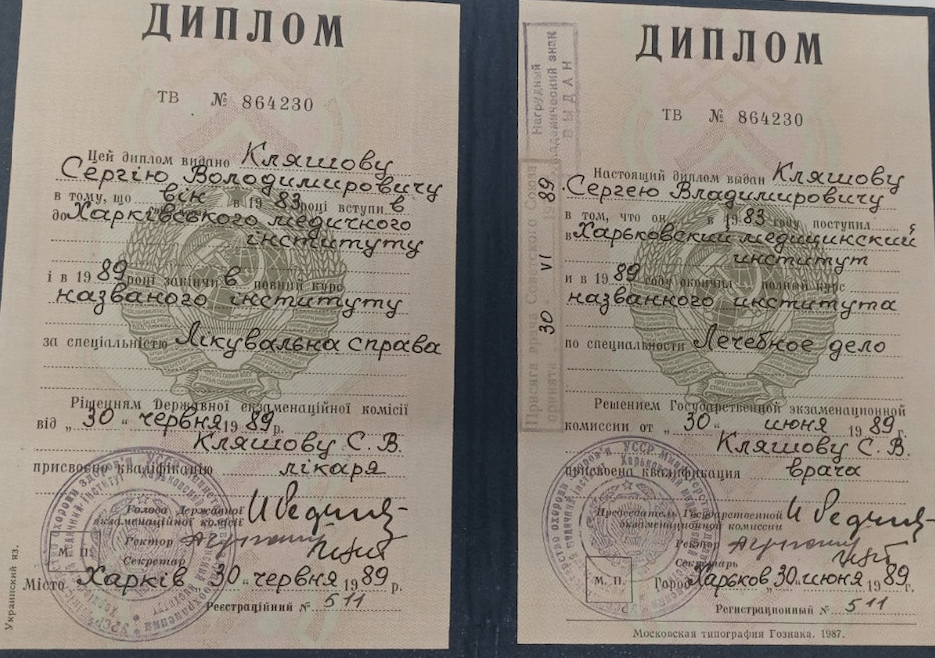 ДИПЛОМ
ТВ № 864230
Цей диплом видано Кляшову
Сергію Володимировичу
в тому, що він в 1983 році вступив
до Харківського медичного
інституту
і в 1989 році закінчив повний курс
названого інституту
за спеціальністю Лікувальна справа
Рішенням Державної екзаменаційної комісії
від „30“ червня 1989 р.
Кляшову С. В.
присвоєно кваліфікацію лікаря
Голова Державної
екзаменаційної комісії
Ректор
Секретар
М. П.
Місто Харків „30“ червня 1989 р.
Реєстраційний № 511
Украинский яз.
ДИПЛОМ
ТВ № 864230
Нагрудный
академический знак
ВЫДАН
Присяга врача Советского Союза
принята
30 VI 89
Настоящий диплом выдан Кляшову
Сергею Владимировичу
в том, что он в 1983 году поступил
в Харьковский медицинский
институт
и в 1989 году окончил полный курс
названного института
по специальности Лечебное дело
Решением Государственной экзаменационной
комиссии от „30“ июня 1989 г.
Кляшову С. В.
присвоена квалификация врача
Председатель Государственной
экзаменационной комиссии
Ректор
Секретарь
М. П.
Город Харьков 30 июня 1989 г.
Регистрационный № 511
Московская типография Гознака. 1987.